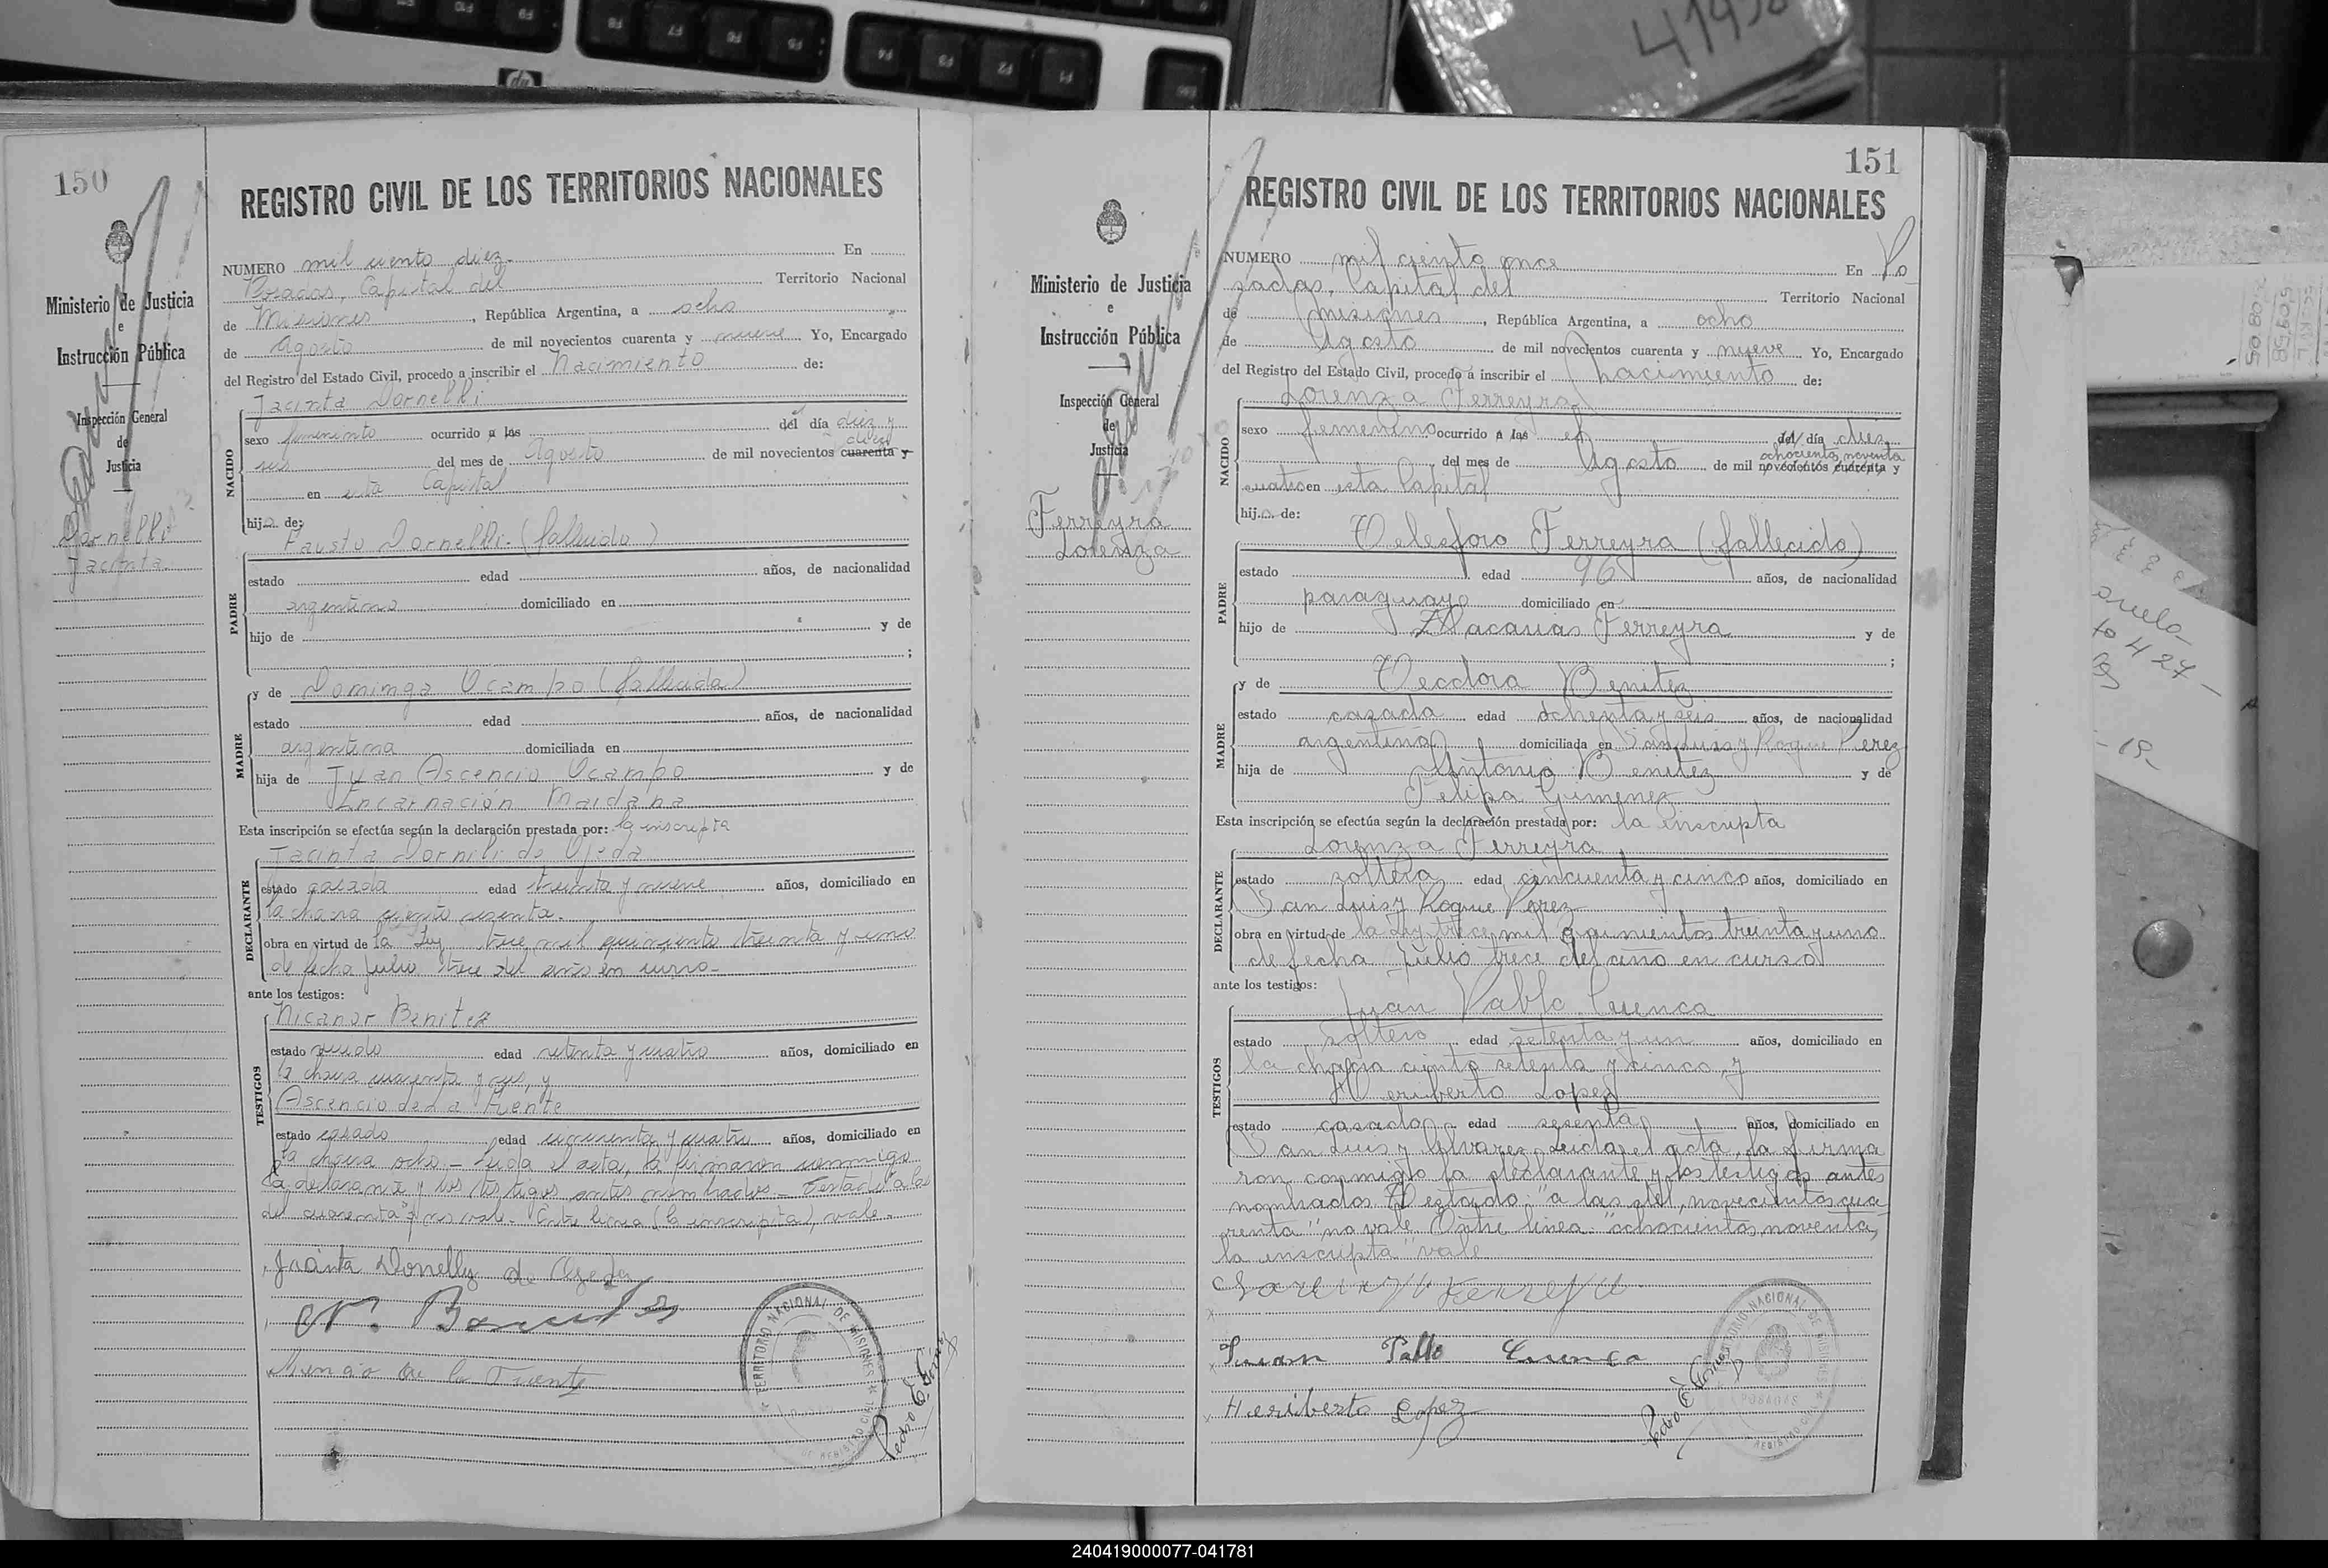 41930
150
REGISTRO CIVIL DE LOS TERRITORIOS NACIONALES
Ministerio de Justicia
e
Instrucción Pública
Inspección General
de
Justicia
Dornelli
Jacinta
NUMERO mil ciento diez. En
Posadas, Capital del Territorio Nacional
de Misiones, República Argentina, a ocho
de Agosto de mil novecientos cuarenta y nueve Yo, Encargado
del Registro del Estado Civil, procedo a inscribir el Nacimiento de:
Jacinta Dornelli
NACIDO
sexo femenino ocurrido a las del día diez y
diez
seis del mes de Agosto de mil novecientos cuarenta y
en esta Capital
hija de:
PADRE
Fausto Dornelli.- (fallecido)
estado edad años, de nacionalidad
argentino domiciliado en
hijo de y de
;
MADRE
y de Dominga Ocampo (fallecida)
estado edad años, de nacionalidad
argentina domiciliada en
hija de Juan Ascencio Ocampo y de
Encarnación Maidana
Esta inscripción se efectúa según la declaración prestada por: la inscripta
DECLARANTE
Jacinta Dornili de Ojeda
estado casada edad treinta y nueve años, domiciliado en
la chacra ciento sesenta.
obra en virtud de la Ley trece mil quiniento treinta y uno
de fecha Julio trece del año en curso-
ante los testigos:
TESTIGOS
Nicanor Benitez
estado viudo edad setenta y cuatro años, domiciliado en
la chacra cuarenta y seis, y
Ascencio de La Fuente
estado casado edad cincuenta y cuatro años, domiciliado en
la chacra ocho.- Leida el acta, la firmaron conmigo
la declarante y los testigos antes nombrados.- Testado "a las
del cuarenta y" no vale. Entre linea (la inscripta), vale.-
Jacinta Donelly de Ojeda
N. Benites
Asencio de la Fuente
TERRITORIO NACIONAL DE MISIONES
REGISTRO CIVIL
151
REGISTRO CIVIL DE LOS TERRITORIOS NACIONALES
Ministerio de Justicia
e
Instrucción Pública
Inspección General
de
Justicia
Ferreyra
Lorenza
NUMERO mil ciento once En Po
sadas, Capital del Territorio Nacional
de Misiones, República Argentina, a ocho
de Agosto de mil novecientos cuarenta y nueve Yo, Encargado
del Registro del Estado Civil, procedo a inscribir el nacimiento de:
Lorenza Ferreyra
NACIDO
sexo femenino ocurrido a las el del día diez
ochocientos noventa
del mes de Agosto de mil novecientos cuarenta y
cuatro en esta Capital
hija de:
PADRE
Telesforo Ferreyra (fallecido)
estado edad 96 años, de nacionalidad
paraguayo domiciliado en
hijo de Macarias Ferreyra y de
;
MADRE
y de Teodora Benitez
estado casada edad ochenta y seis años, de nacionalidad
argentina domiciliada en San Luis y Roque Perez
hija de Antonio Benitez y de
Felipa Gimenez
Esta inscripción se efectúa según la declaración prestada por: la inscripta
DECLARANTE
Lorenza Ferreyra
estado soltera edad cincuenta y cinco años, domiciliado en
San Luis y Roque Perez
obra en virtud de la Ley trece mil quinientos treinta y uno
de fecha Julio trece del año en curso
ante los testigos:
TESTIGOS
Juan Pablo Cuenca
estado soltero edad setenta y un años, domiciliado en
la chacra ciento setenta y cinco, y
Heriberto Lopez
estado casado edad sesenta años, domiciliado en
San Luis y Alvarez Leida el acta, la firma
ron conmigo la declarante y los testigos antes
nombrados Testado: "a las, del, novecientos cua
renta" no vale Entre linea: "ochocientos noventa,
la inscripta" vale
Lorenza Ferreyra
Juan Pablo Cuenca
Heriberto Lopez
TERRITORIO NACIONAL DE MISIONES
POSADAS
REGISTRO CIVIL
240419000077-041781